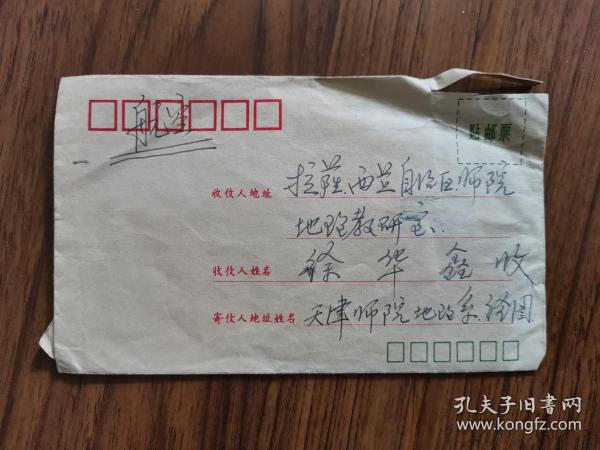 航空
贴邮票
收伩人地址 拉萨西芷自治区师院
地理教研室
收伩人姓名 徐华鑫收
寄伩人地址姓名 天津师院地理系
孔夫子旧书网
www.kongfz.com